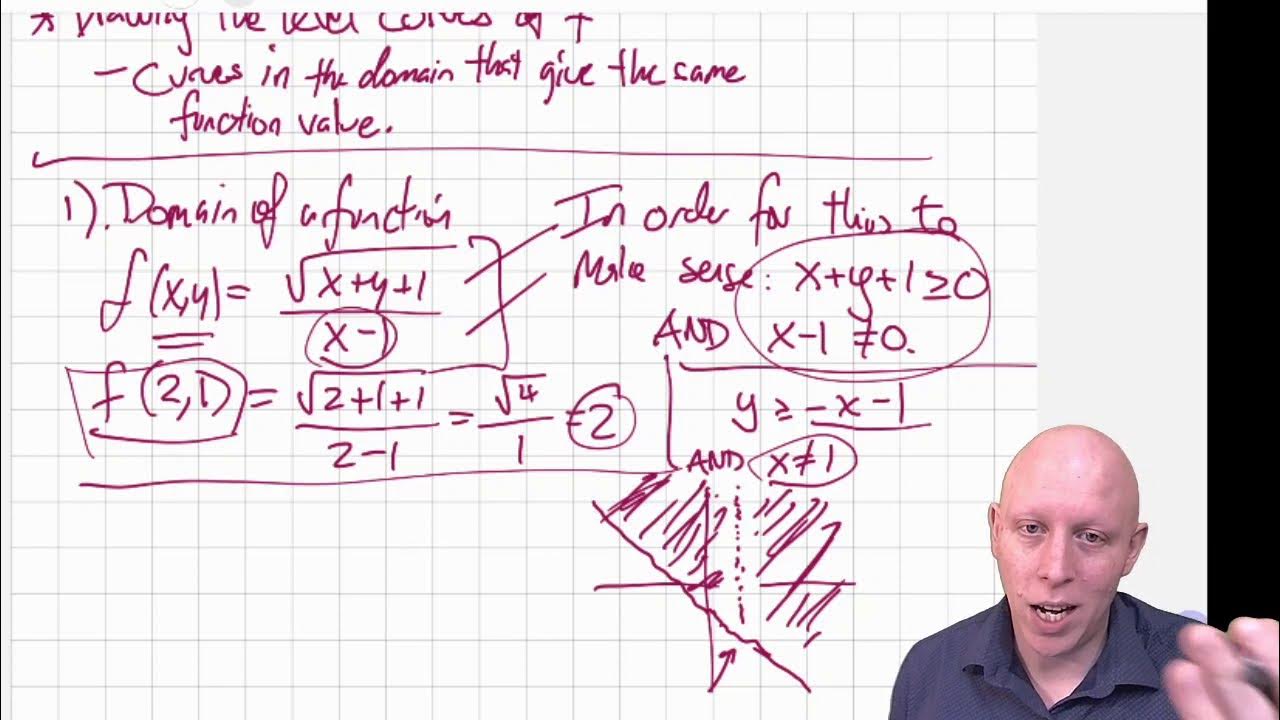 * Drawing the level curves of f
- Curves in the domain that give the same
function value.
1). Domain of a function
f(x,y) = √x+y+1 / x-1
In order for this to
Make sense: x+y+1 ≥ 0
AND x-1 ≠ 0.
f(2,1) = √2+1+1 / 2-1 = √4 / 1 = 2
y ≥ -x-1
AND x≠1